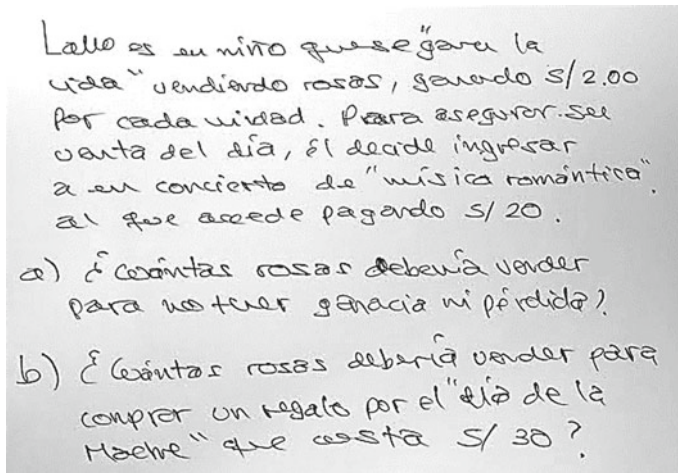 Lalo es un niño que se "gana la
vida" vendiendo rosas, ganando S/2.00
por cada unidad. Para asegurar su
venta del día, él decide ingresar
a un concierto de "música romántica",
al que accede pagando S/20.
a) ¿Cuántas rosas debería vender
para no tener ganacia ni pérdida?
b) ¿Cuántas rosas debería vender para
comprar un regalo por el "día de la
Madre" que cuesta S/30?